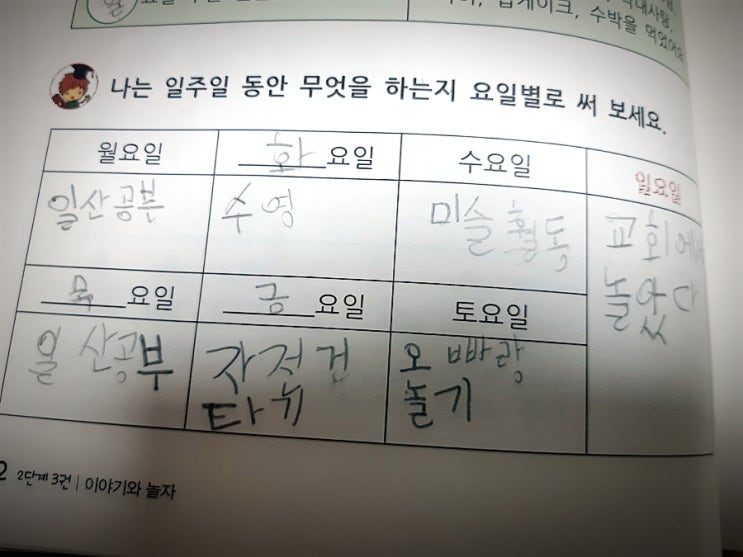 요일
컵케이크, 수박을 먹었어요
나는 일주일 동안 무엇을 하는지 요일별로 써 보세요.
월요일 화요일 수요일 일요일
일산공부 수영 미슬 활동 교회에서
놀았다
목요일 금요일 토요일
일산공부 자전건 오빠랑
타기 놀기
2단계 3권 | 이야기와 놀자